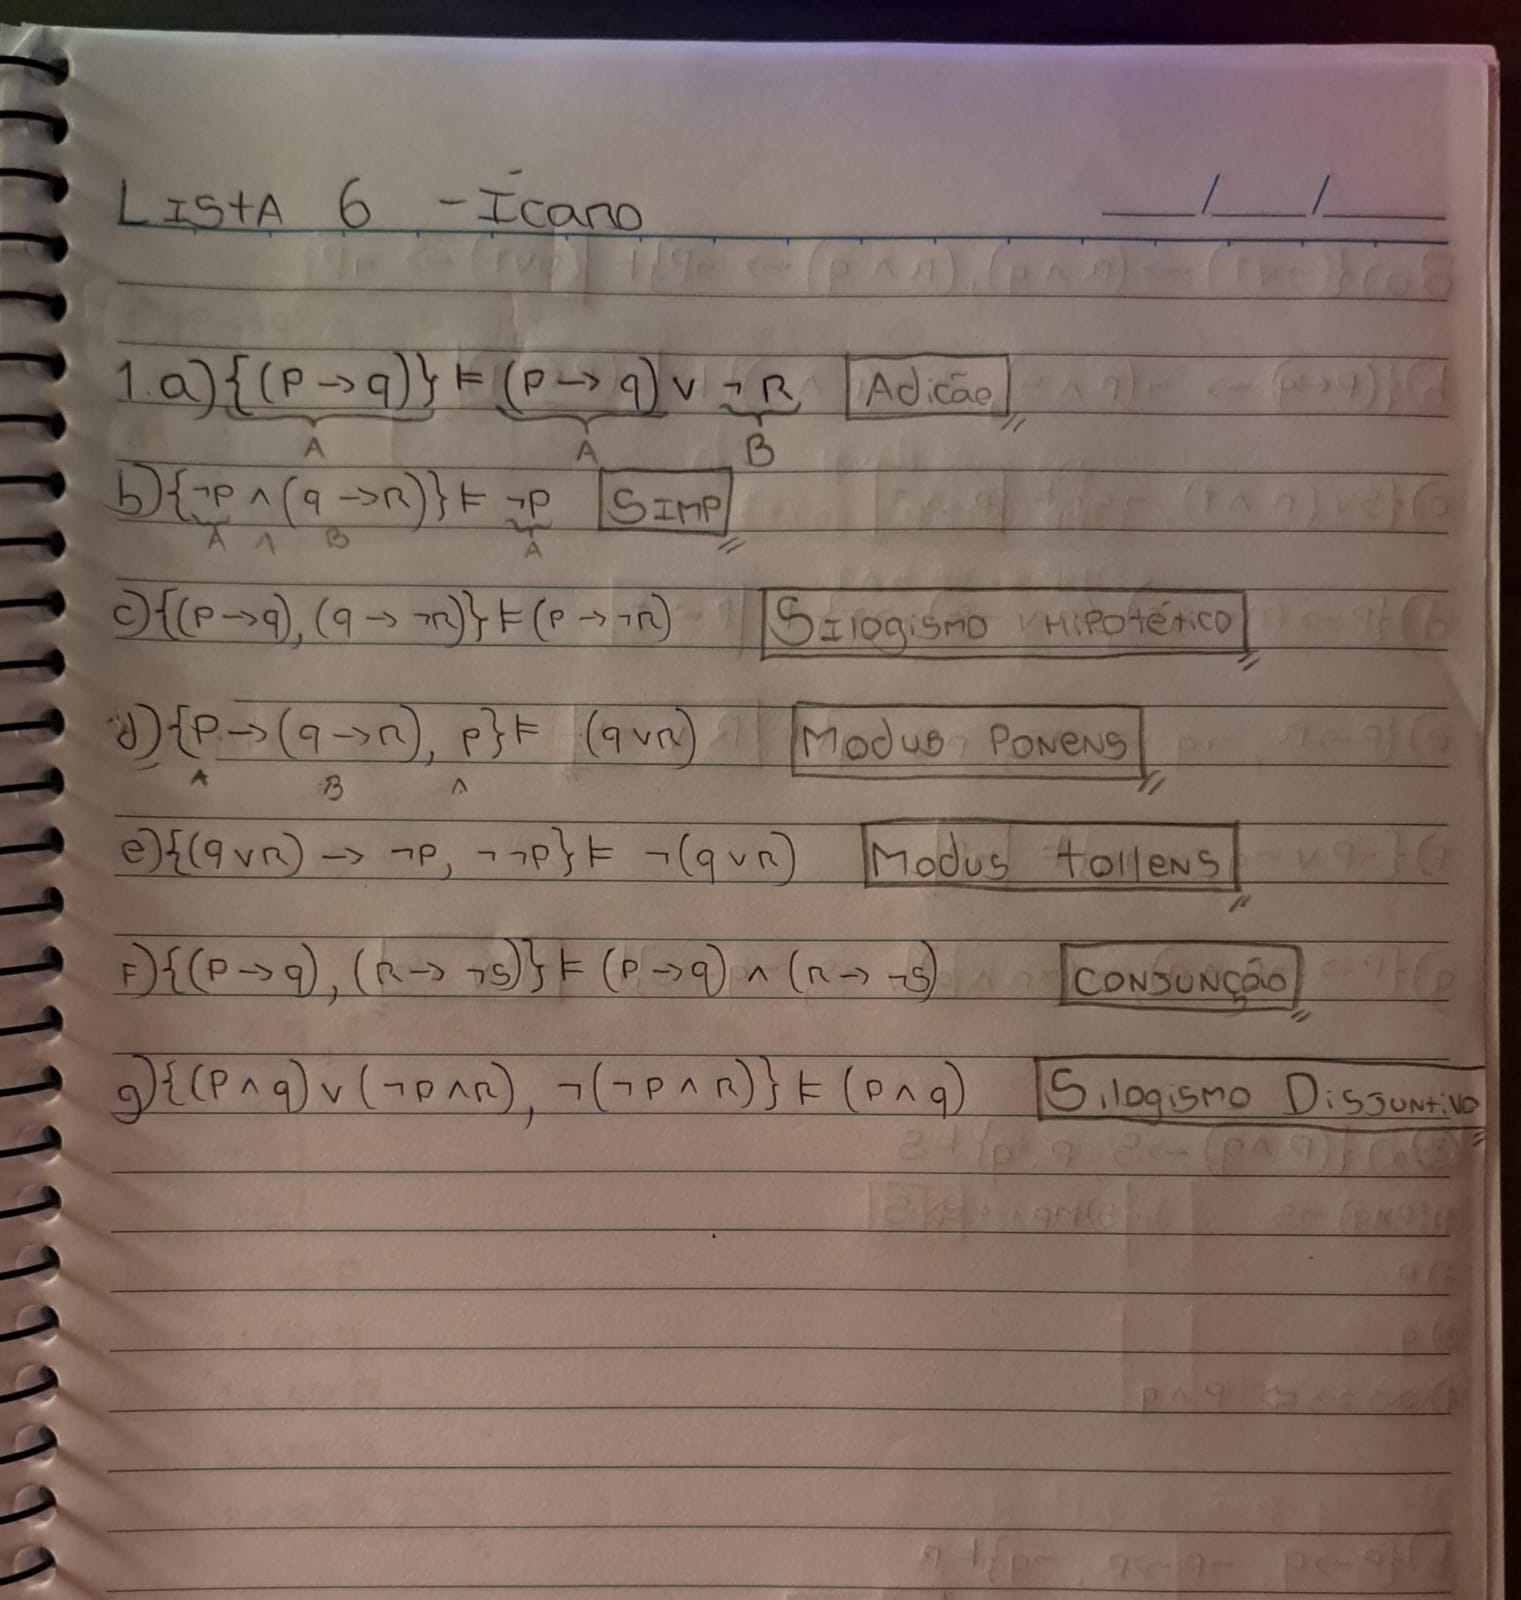 LISTA 6 - Ícaro ___/___/___
1.a) {(P → q)} ⊨ (P → q) ∨ ¬R Adicão
A A B
b) {¬P ∧ (q → R)} ⊨ ¬P SIMP
A ∧ B A
c) {(P → q), (q → ¬R)} ⊨ (P → ¬R) SIlogismo HIPotético
d) {P → (q → R), P} ⊨ (q ∨ R) Modus PONENS
A B A
e) {(q ∨ R) → ¬P, ¬¬P} ⊨ ¬(q ∨ R) Modus tollENS
F) {(P → q), (R → ¬S)} ⊨ (P → q) ∧ (R → ¬S) CONJUNÇÃO
g) {(P ∧ q) ∨ (¬P ∧ R), ¬(¬P ∧ R)} ⊨ (P ∧ q) Silogismo DisJuntivo